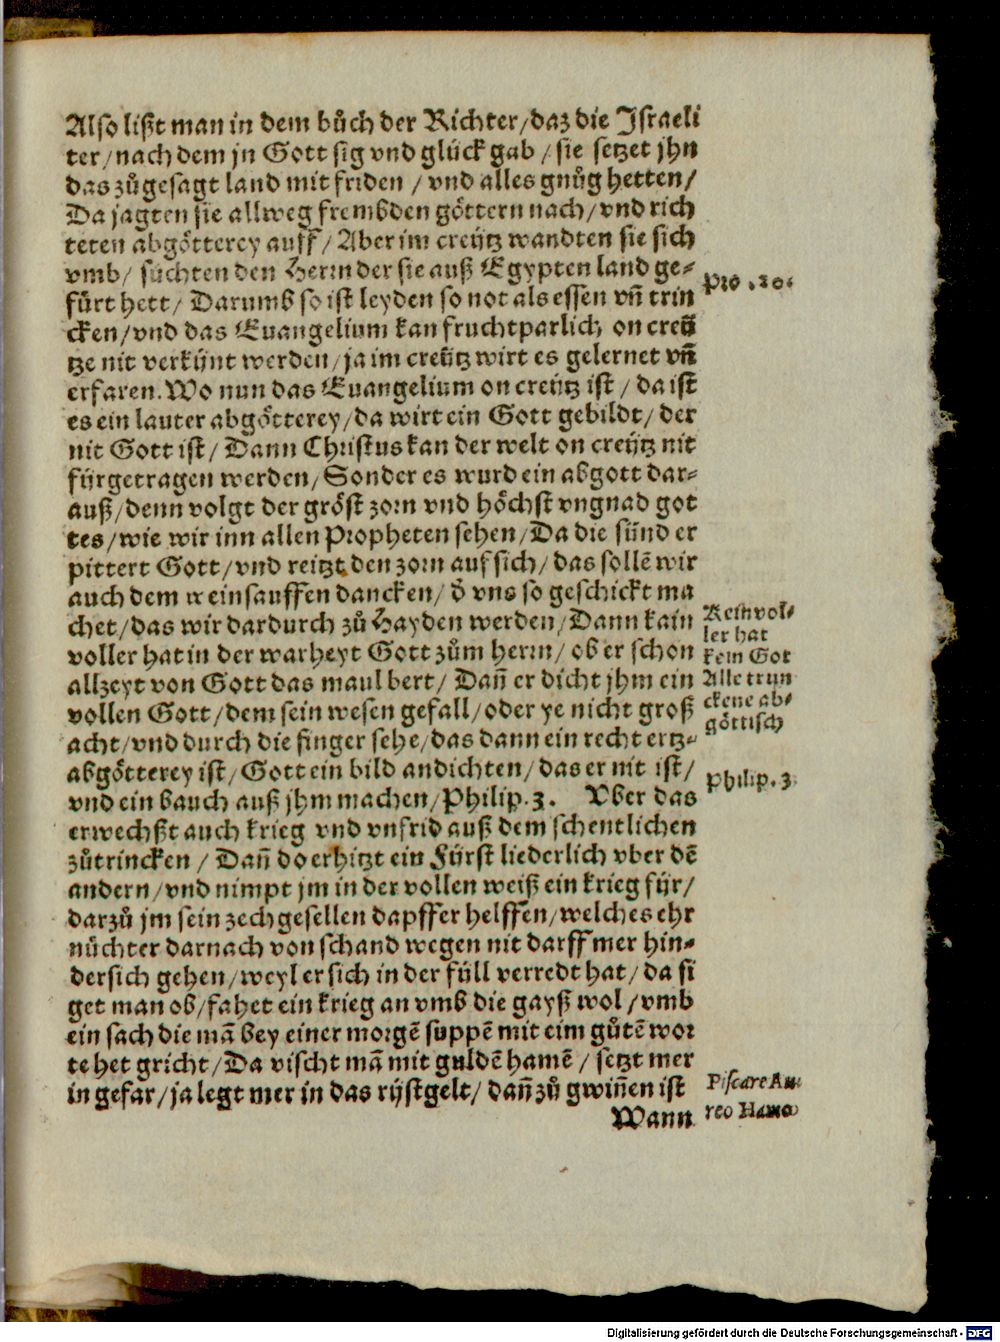 Also lißt man in dem bůch der Richter/daz die Israeli
ter/nach dem jn Gott sig vnd glück gab/sie setzet jhn
das zůgesagt land mit friden/vnd alles gnůg hetten/
Da jagten sie allweg frembden göttern nach/vnd rich
teten abgötterey auff/Aber im creütz wandten sie sich
vmb/sůchten den Herrn der sie auß Egypten land ge-
fürt hett/Darumb so ist leyden so not als essen vñ trin
Pro. 20.
cken/vnd das Euangelium kan fruchtparlich on creü
tze nit verkünt werden/ja im creütz wirt es gelernet vñ
erfaren. Wo nun das Euangelium on creütz ist/da ist
es ein lauter abgötterey/da wirt ein Gott gebildt/der
nit Gott ist/Dann Christus kan der welt on creütz nit
fürgetragen werden/Sonder es wurd ein abgott dar-
auß/denn volgt der gröst zorn vnd höchst vngnad got
tes/wie wir inn allen Propheten sehen/Da die sünd er
pittert Gott/vnd reitzt den zorn auf sich/das sollẽ wir
auch dem weinsauffen dancken/ď vns so geschickt ma
chet/das wir dardurch zů Hayden werden/Dann kain
voller hat in der warheyt Gott zům herrn/ob er schon
allzeyt von Gott das maul bert/Dañ er dicht jhm ein
vollen Gott/dem sein wesen gefall/oder ye nicht groß
Kein vol-
ler hat
kein Got
Alle trun
ckene ab-
göttisch
acht/vnd durch die finger sehe/das dann ein recht ertz-
abgötterey ist/Gott ein bild andichten/das er nit ist/
vnd ein bauch auß jhm machen/Philip. 3. Vber das
Philip. 3.
erwechßt auch krieg vnd vnfrid auß dem schentlichen
zůtrincken/Dañ do erhitzt ein Fürst liederlich vber dẽ
andern/vnd nimpt jm in der vollen weiß ein krieg für/
darzů jm sein zechgesellen dapffer helffen/welches ehr
nüchter darnach von schand wegen nit darff mer hin-
dersich gehen/weyl er sich in der füll verredt hat/da si
get man ob/fahet ein krieg an vmb die gayß wol/vmb
ein sach die mã bey einer morgẽ suppẽ mit eim gůtẽ wor
te het gricht/Da vischt mã mit guldẽ hamẽ/setzt mer
in gefar/ja legt mer in das rüstgelt/dañ zů gwiñen ist
Piscare Au
reo Hamo
Wann
Digitalisierung gefördert durch die Deutsche Forschungsgemeinschaft - DFG